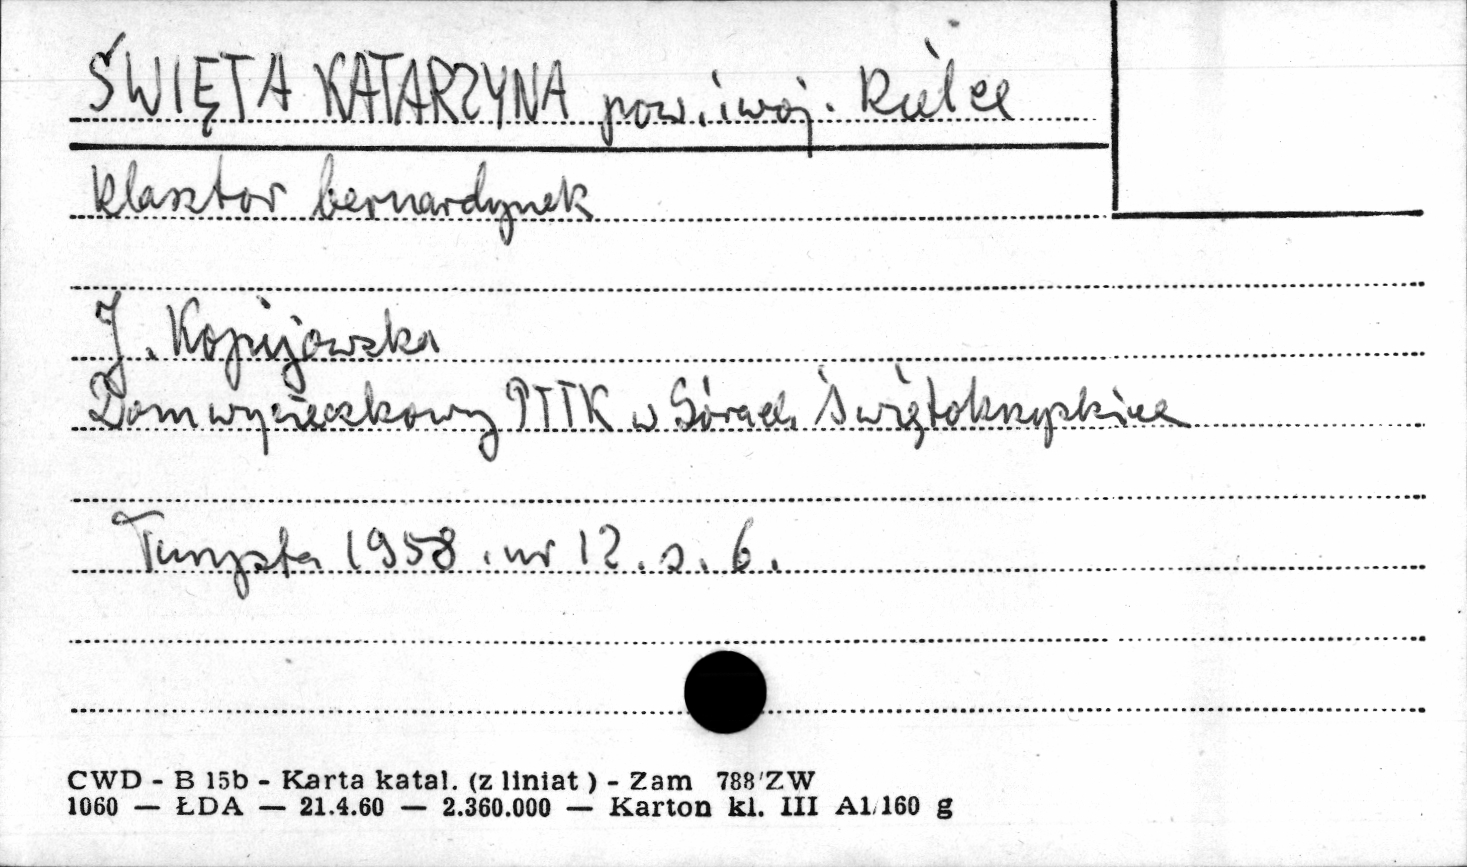 ŚWIĘTA KATARZYNA pow. i woj. Kielce
klasztor bernardynek
J. Kopijowska
Dom wycieczkowy PTTK w Górach Świętokrzyskich
Turysta 1958. nr 12. s. 6.
CWD - B 15b - Karta katal. (z liniat) - Zam 788/ZW
1060 — ŁDA — 21.4.60 — 2.360.000 — Karton kl. III A1/160 g